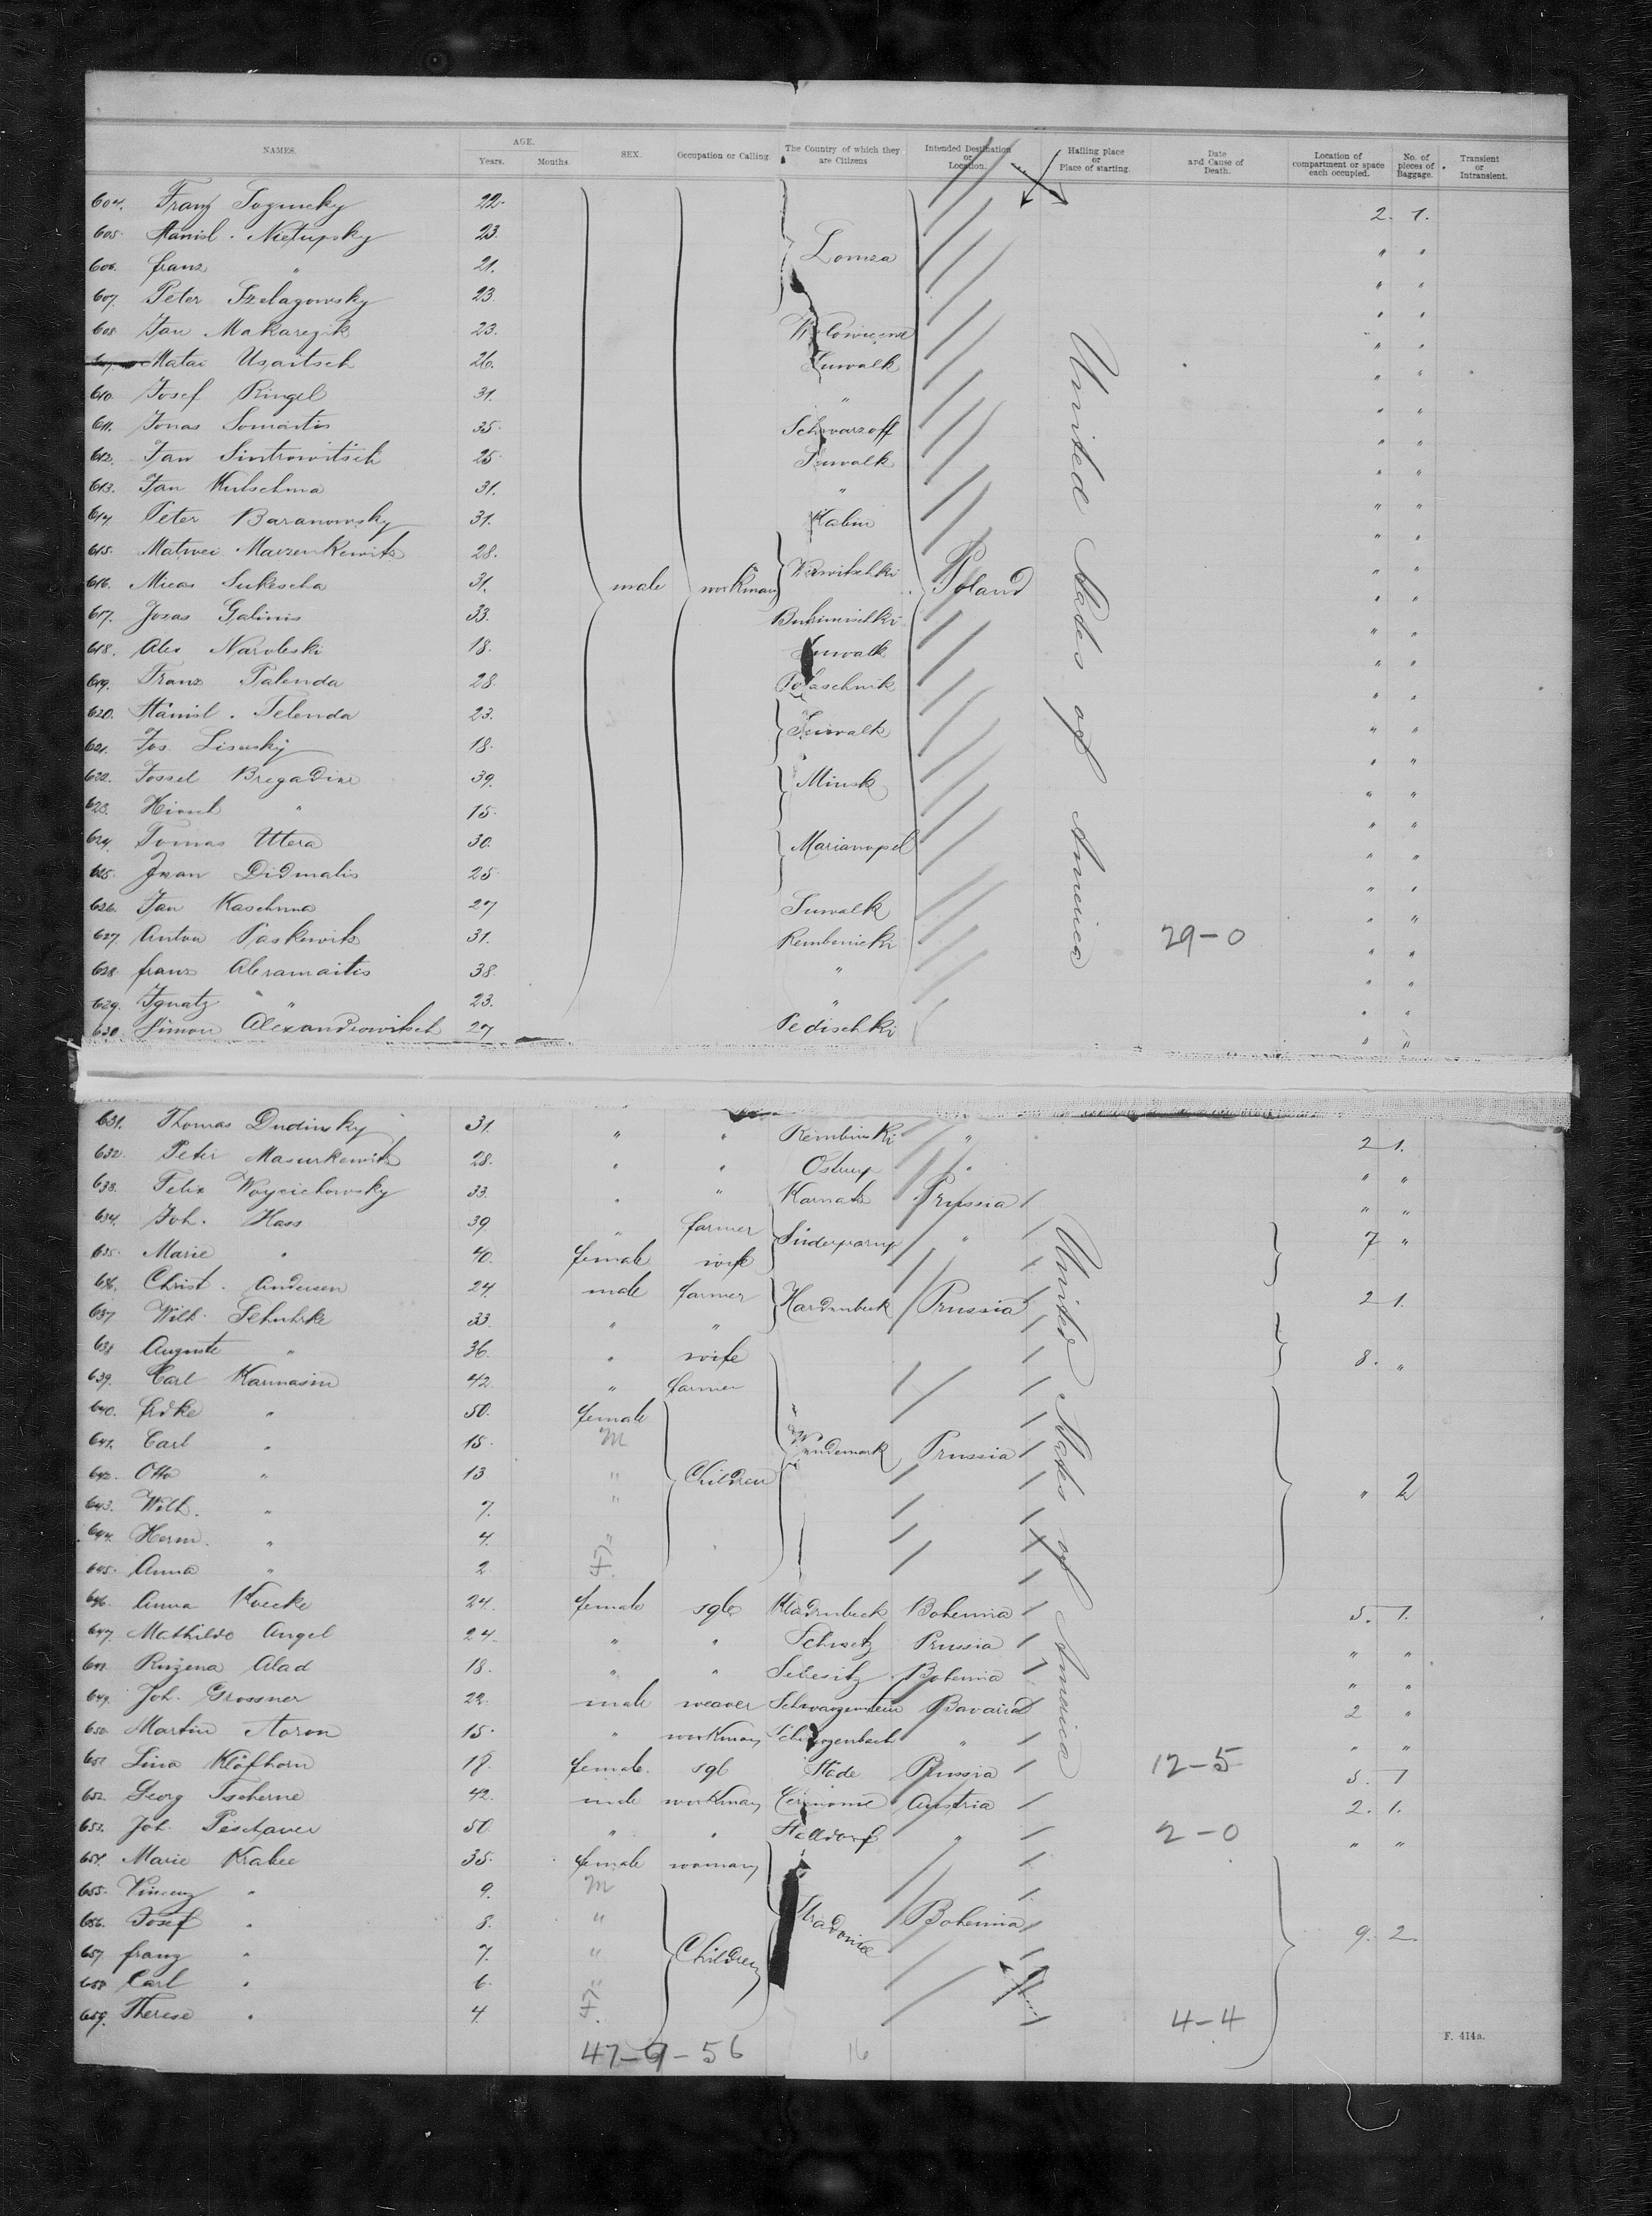 NAMES. AGE. Years. Months. SEX. Occupation or Calling. The Country of which they are Citizens Intended Destination or Location. Halling place or Place of starting. Date and Cause of Death. Location of compartment or space each occupied. No. of pieces of Baggage. Transient or Intransient.
604. Franz 22. 2. 1.
605. Stanisl. Nietupsky 23. " "
Lomza
606. franz " 21. " "
607. Peter Szelagowsky 23. " "
608. Jan Makarezik 23. " "
Matai Usaitsch 26. Suwalk " "
610. Josef Ringel 31. " " "
611. Jonas Somaitis 35. Schwarzoff " "
612. Jan Sintrowitsch 25. Suwalk " "
613. Jan Kulschma 31. " " "
614. Peter Baranowsky 31. Kalin " "
615. Matwei 28. " "
616. Micas Sukescha 31. male workman Poland " "
617. Josas Galinis 33. " "
618. Alex Naroleski 18. Suwalk " "
619. Franz Palenda 28. " "
620. Stanisl. Telenda 23. Suwalk " "
621. Jos. Lisusky 18. " "
622. Jossel Bregadine 39. Minsk " "
623. Hirsch " 15. " "
624. Tomas Utera 30. Marianopel " "
625. Iwan Didmalis 25. " "
626. Jan Kaschuna 27 Suwalk " "
627. Anton Paskewitz 31. 29-0 " "
628. franz Abramaitis 38. " " "
629. Ignatz " 23. " " "
630. Simon Alexandrowitsch 27 Pedischki " "
United States of America
631. Thomas Dudinsky 31. " " Rembinski " 2 1.
632. Peter Masurkewitz 28. " " " " "
633. Felix Woycichowsky 33. " " Karnatz Prussia " "
634. Joh. Hass 39 " farmer Süderparup " 7 "
635. Marie " 40. female wife
636. Christ. Andersen 24. male farmer Hardenbeck Prussia 2 1.
637. Wilh. Schuhke 33. " "
638. Auguste " 36. " wife 8. "
639. Carl Karmasin 42. " farmer
640. frdke " 50. female
641. Carl " 15. M Prussia
642. Otto " 13 " Children " 2
643. Wilh. " 7. "
644. Herm. " 4. "
645. Anna " 2 F.
646. Anna Kuecke 24. female sgle Bohemia 5. 1.
647. Mathilde Angel 24. " " Schwetz Prussia " "
648. Ruzena Alad 18. " " Bohemia " "
649. Joh. Grossner 22. male weaver Bavaria 2 "
650. Martin Aaron 15. " workman " " "
651. Lina Klöfkorn 18. female. sgl Stade Prussia 12-5 5. 1
652. Georg Tscherne 42. male workman Austria 2. 1.
653. Joh. Peschauer 50. " " Stalldorf " 2-0 " "
654. Marie Krabec 35. female woman
655. Vincenz " 9. M
656. Josef " 8. " Stradonice Bohemia 9. 2
657. franz " 7. " Children
658. Carl " 6. "
659. Therese " 4. F. 4-4
United States of America
F. 414a.
47-9-56 16